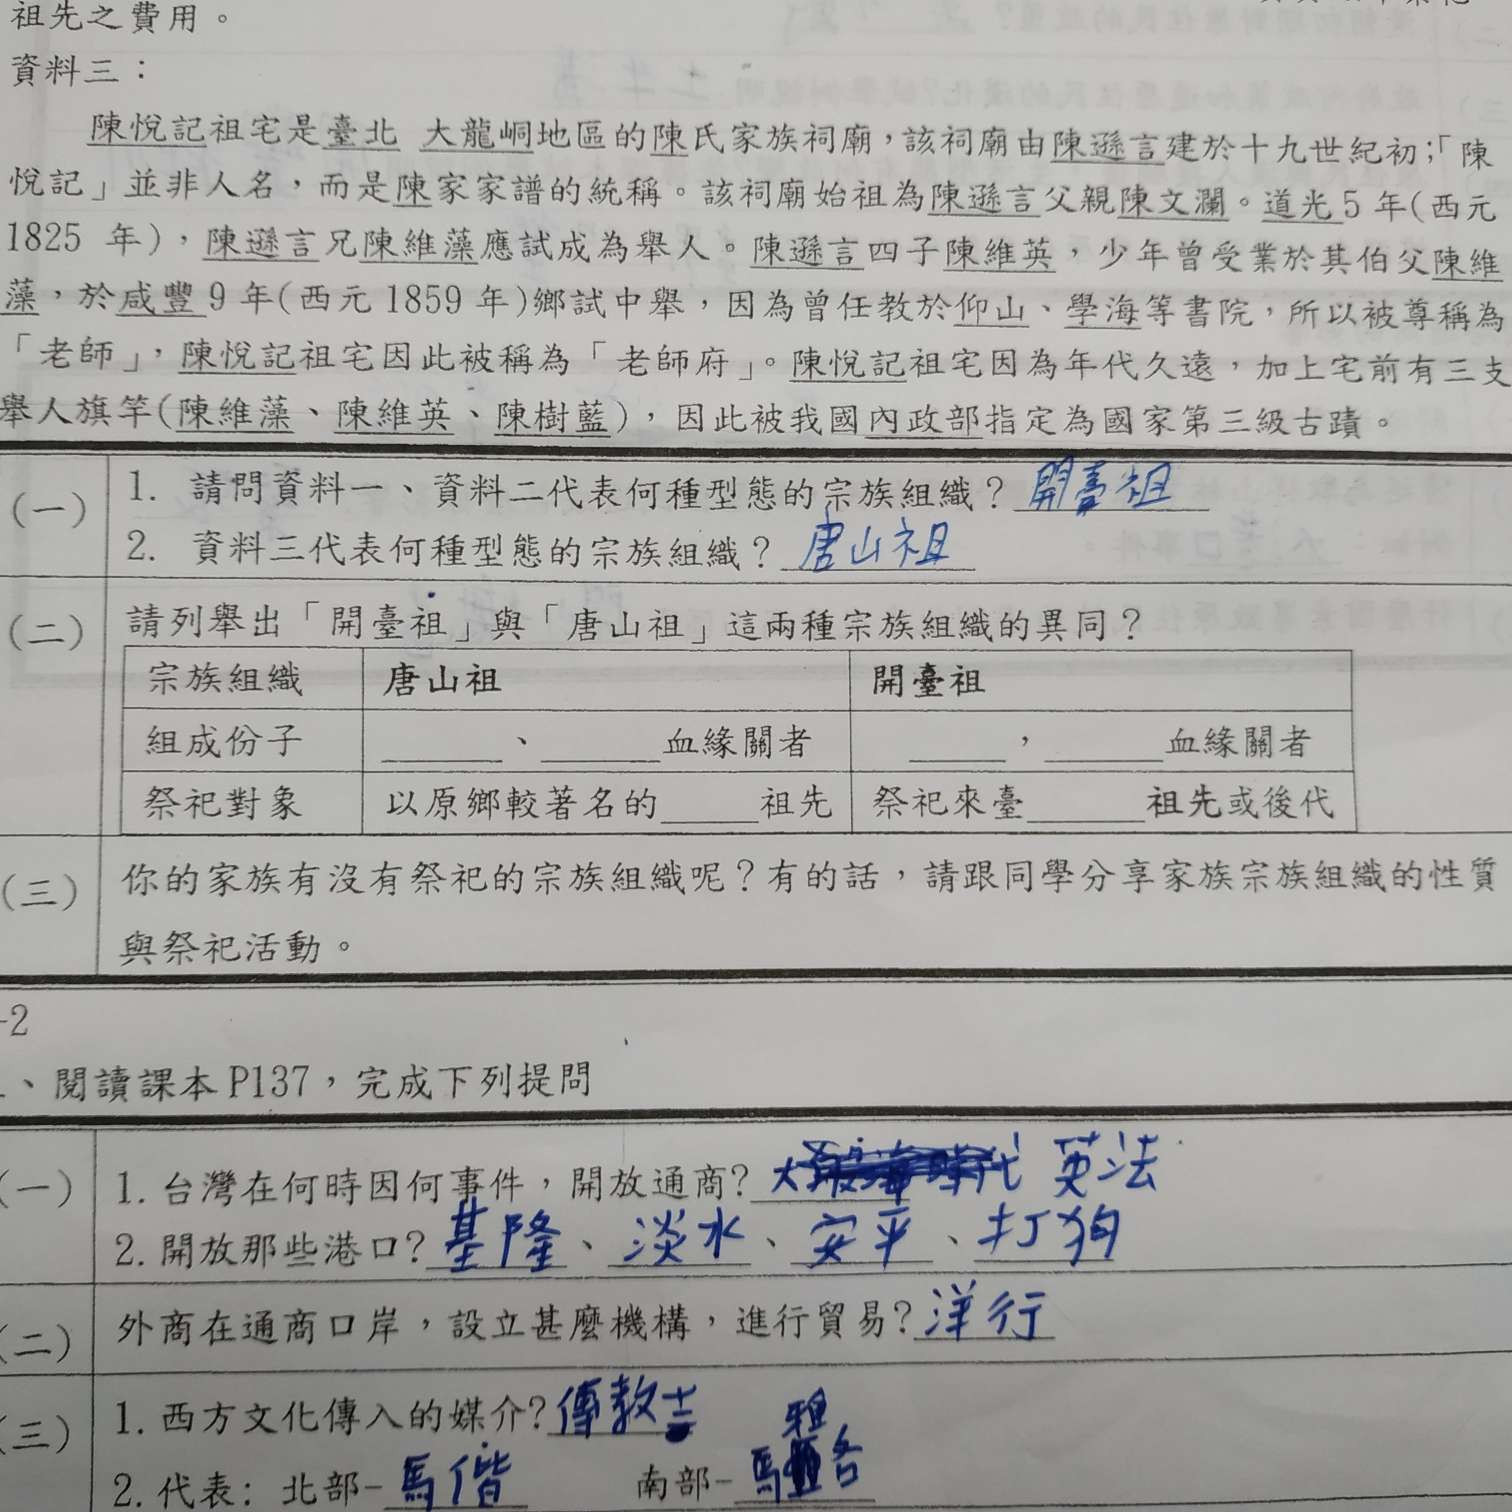 祖先之費用。
資料三：
陳悅記祖宅是臺北 大龍峒地區的陳氏家族祠廟，該祠廟由陳遜言建於十九世紀初；「陳
悅記」並非人名，而是陳家家譜的統稱。該祠廟始祖為陳遜言父親陳文瀾。道光5年(西元
1825 年)，陳遜言兄陳維藻應試成為舉人。陳遜言四子陳維英，少年曾受業於其伯父陳維
藻，於咸豐9年(西元1859年)鄉試中舉，因為曾任教於仰山、學海等書院，所以被尊稱為
「老師」，陳悅記祖宅因此被稱為「老師府」。陳悅記祖宅因為年代久遠，加上宅前有三支
舉人旗竿(陳維藻、陳維英、陳樹藍)，因此被我國內政部指定為國家第三級古蹟。
(一) 1. 請問資料一、資料二代表何種型態的宗族組織？開臺祖
2. 資料三代表何種型態的宗族組織？唐山祖
(二) 請列舉出「開臺祖」與「唐山祖」這兩種宗族組織的異同？
宗族組織 唐山祖 開臺祖
組成份子 ______、______血緣關者 _____，______血緣關者
祭祀對象 以原鄉較著名的_____祖先 祭祀來臺______祖先或後代
(三) 你的家族有沒有祭祀的宗族組織呢？有的話，請跟同學分享家族宗族組織的性質
與祭祀活動。
-2
、閱讀課本P137，完成下列提問
(一) 1. 台灣在何時因何事件，開放通商? 英法
2. 開放那些港口?基隆、淡水、安平、打狗
(二) 外商在通商口岸，設立甚麼機構，進行貿易?洋行
(三) 1. 西方文化傳入的媒介?傳教士
2. 代表：北部-馬偕 南部-馬雅各